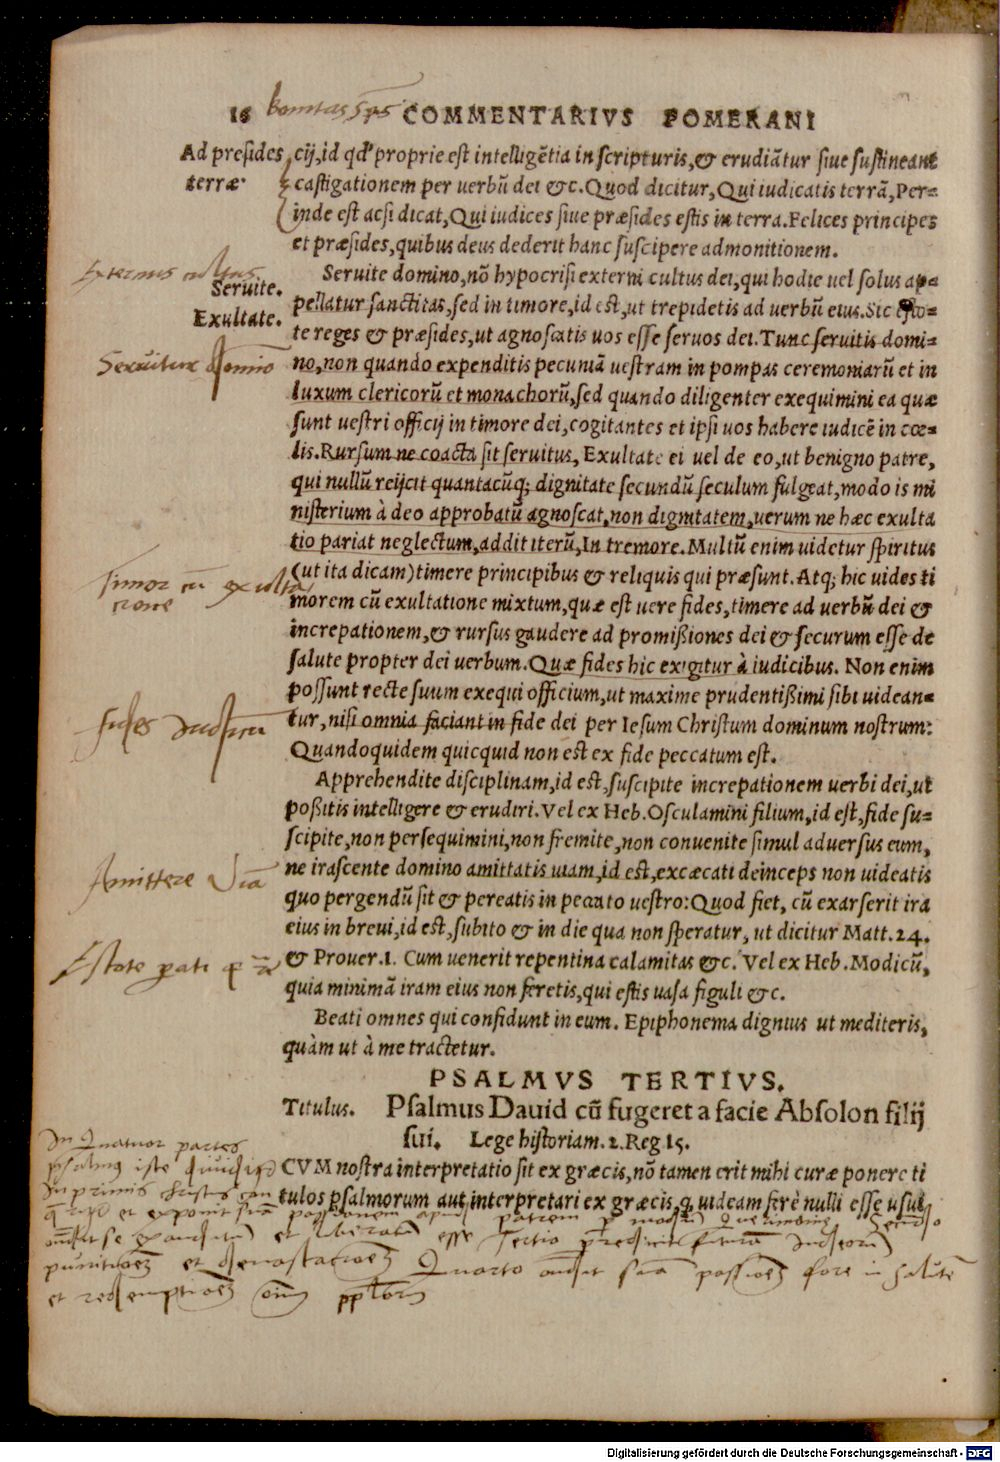 16 COMMENTARIVS POMERANI
Ad presides cij, id qd' proprie est intelligētia in scripturis, & erudiātur siue sustineant
terræ· castigationem per uerbū dei &c. Quod dicitur, Qui iudicatis terrā, Per=
inde est acsi dicat, Qui iudices siue præsides estis in terra. Felices principes
et præsides, quibus deus dederit hanc suscipere admonitionem.
Externus cultus
Seruite. Seruite domino, nō hypocrisi externi cultus dei, qui hodie uel solus ap=
Exultate. pellatur sanctitas, sed in timore, id est, ut trepidetis ad uerbū eius. Sic esto=
te reges & præsides, ut agnoscatis uos esse seruos dei. Tunc seruitis domi=
Seruitur domino no, non quando expenditis pecuniā uestram in pompas ceremoniarū et in
luxum clericorū et monachorū, sed quando diligenter exequimini ea quæ
sunt uestri officij in timore dei, cogitantes et ipsi uos habere iudicē in cœ=
lis. Rursum ne coacta sit seruitus, Exultate ei uel de eo, ut benigno patre,
qui nullū reijcit quantacūq; dignitate secundū seculum fulgeat, modo is mi
nisterium à deo approbatū agnoscat, non dignitatem, uerum ne hæc exulta
tio pariat neglectum, addit iterū, In tremore. Multū enim uidetur spiritus
Timor cū exulta
tione
(ut ita dicam) timere principibus & reliquis qui præsunt. Atq; hic uides ti
morem cū exultatione mixtum, quæ est uere fides, timere ad uerbū dei &
increpationem, & rursus gaudere ad promißiones dei & securum esse de
salute propter dei uerbum. Quæ fides hic exigitur à iudicibus. Non enim
possunt recte suum exequi officium, ut maxime prudentißimi sibi uidean=
fides tur, nisi omnia faciant in fide dei per Iesum Christum dominum nostrum:
Quandoquidem quicquid non est ex fide peccatum est.
Apprehendite disciplinam, id est, suscipite increpationem uerbi dei, ut
poßitis intelligere & erudiri. Vel ex Heb. Osculamini filium, id est, fide su=
scipite, non persequimini, non fremite, non conuenite simul aduersus eum,
Amittere Viā ne irascente domino amittatis uiam, id est, excæcati deinceps non uideatis
quo pergendū sit & pereatis in peccato uestro: Quod fiet, cū exarserit ira
eius in breui, id est, subito & in die qua non speratur, ut dicitur Matt. 24.
Estote parati & Prouer. 1. Cum uenerit repentina calamitas &c. Vel ex Heb. Modicū,
quia minimā iram eius non feretis, qui estis uasa figuli &c.
Beati omnes qui confidunt in eum. Epiphonema dignius ut mediteris,
quàm ut à me tractetur.
PSALMVS TERTIVS.
Titulus. Psalmus Dauid cū fugeret a facie Absolon filij
sui. Lege historiam. 2. Reg 15.
CVM nostra interpretatio sit ex græcis, nō tamen erit mihi curæ ponere ti
tulos psalmorum aut interpretari ex græcis, q, uideam ferè nulli esse usui,
In Quatuor partes
psalmus iste diuidit
In primis christus
et exponit suā passionem apud patrem
et liberatū esse Tertio
punitioē et deuastatioē Quarto suā passioē fore in salutē
et redemptioē